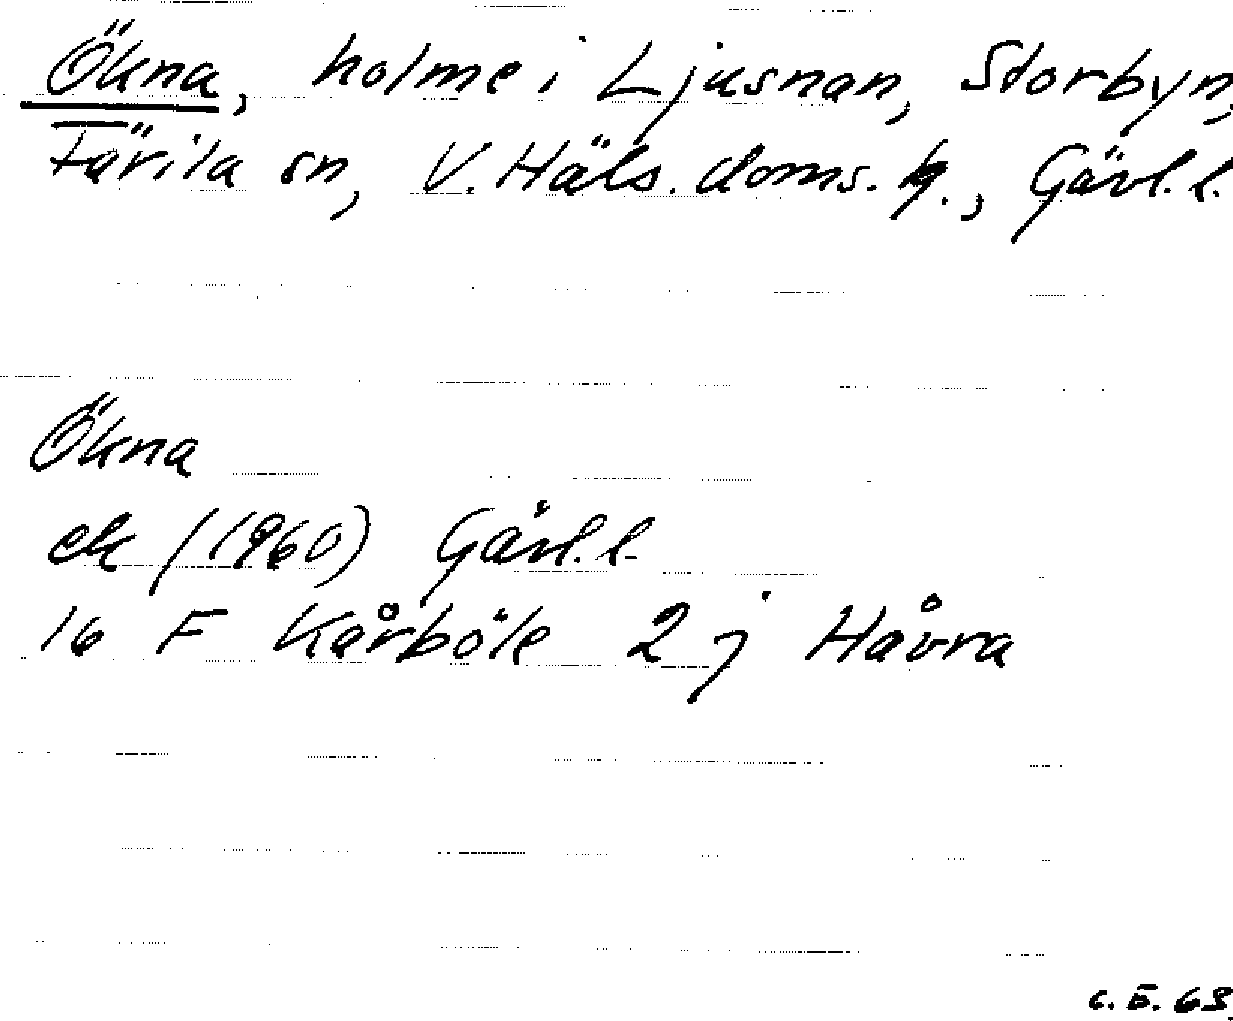 Ökna, holme i Ljusnan, Storbyn,
Färila sn, V. Häls. doms. h., Gävl. l.
Ökna
ek (1960) Gävl. l.
16 F Kårböle 2 j Håvra
C. E. 63.